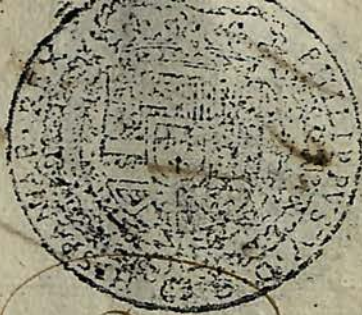 PHILIPPUS·V·D·G·HISPANIAR·REX